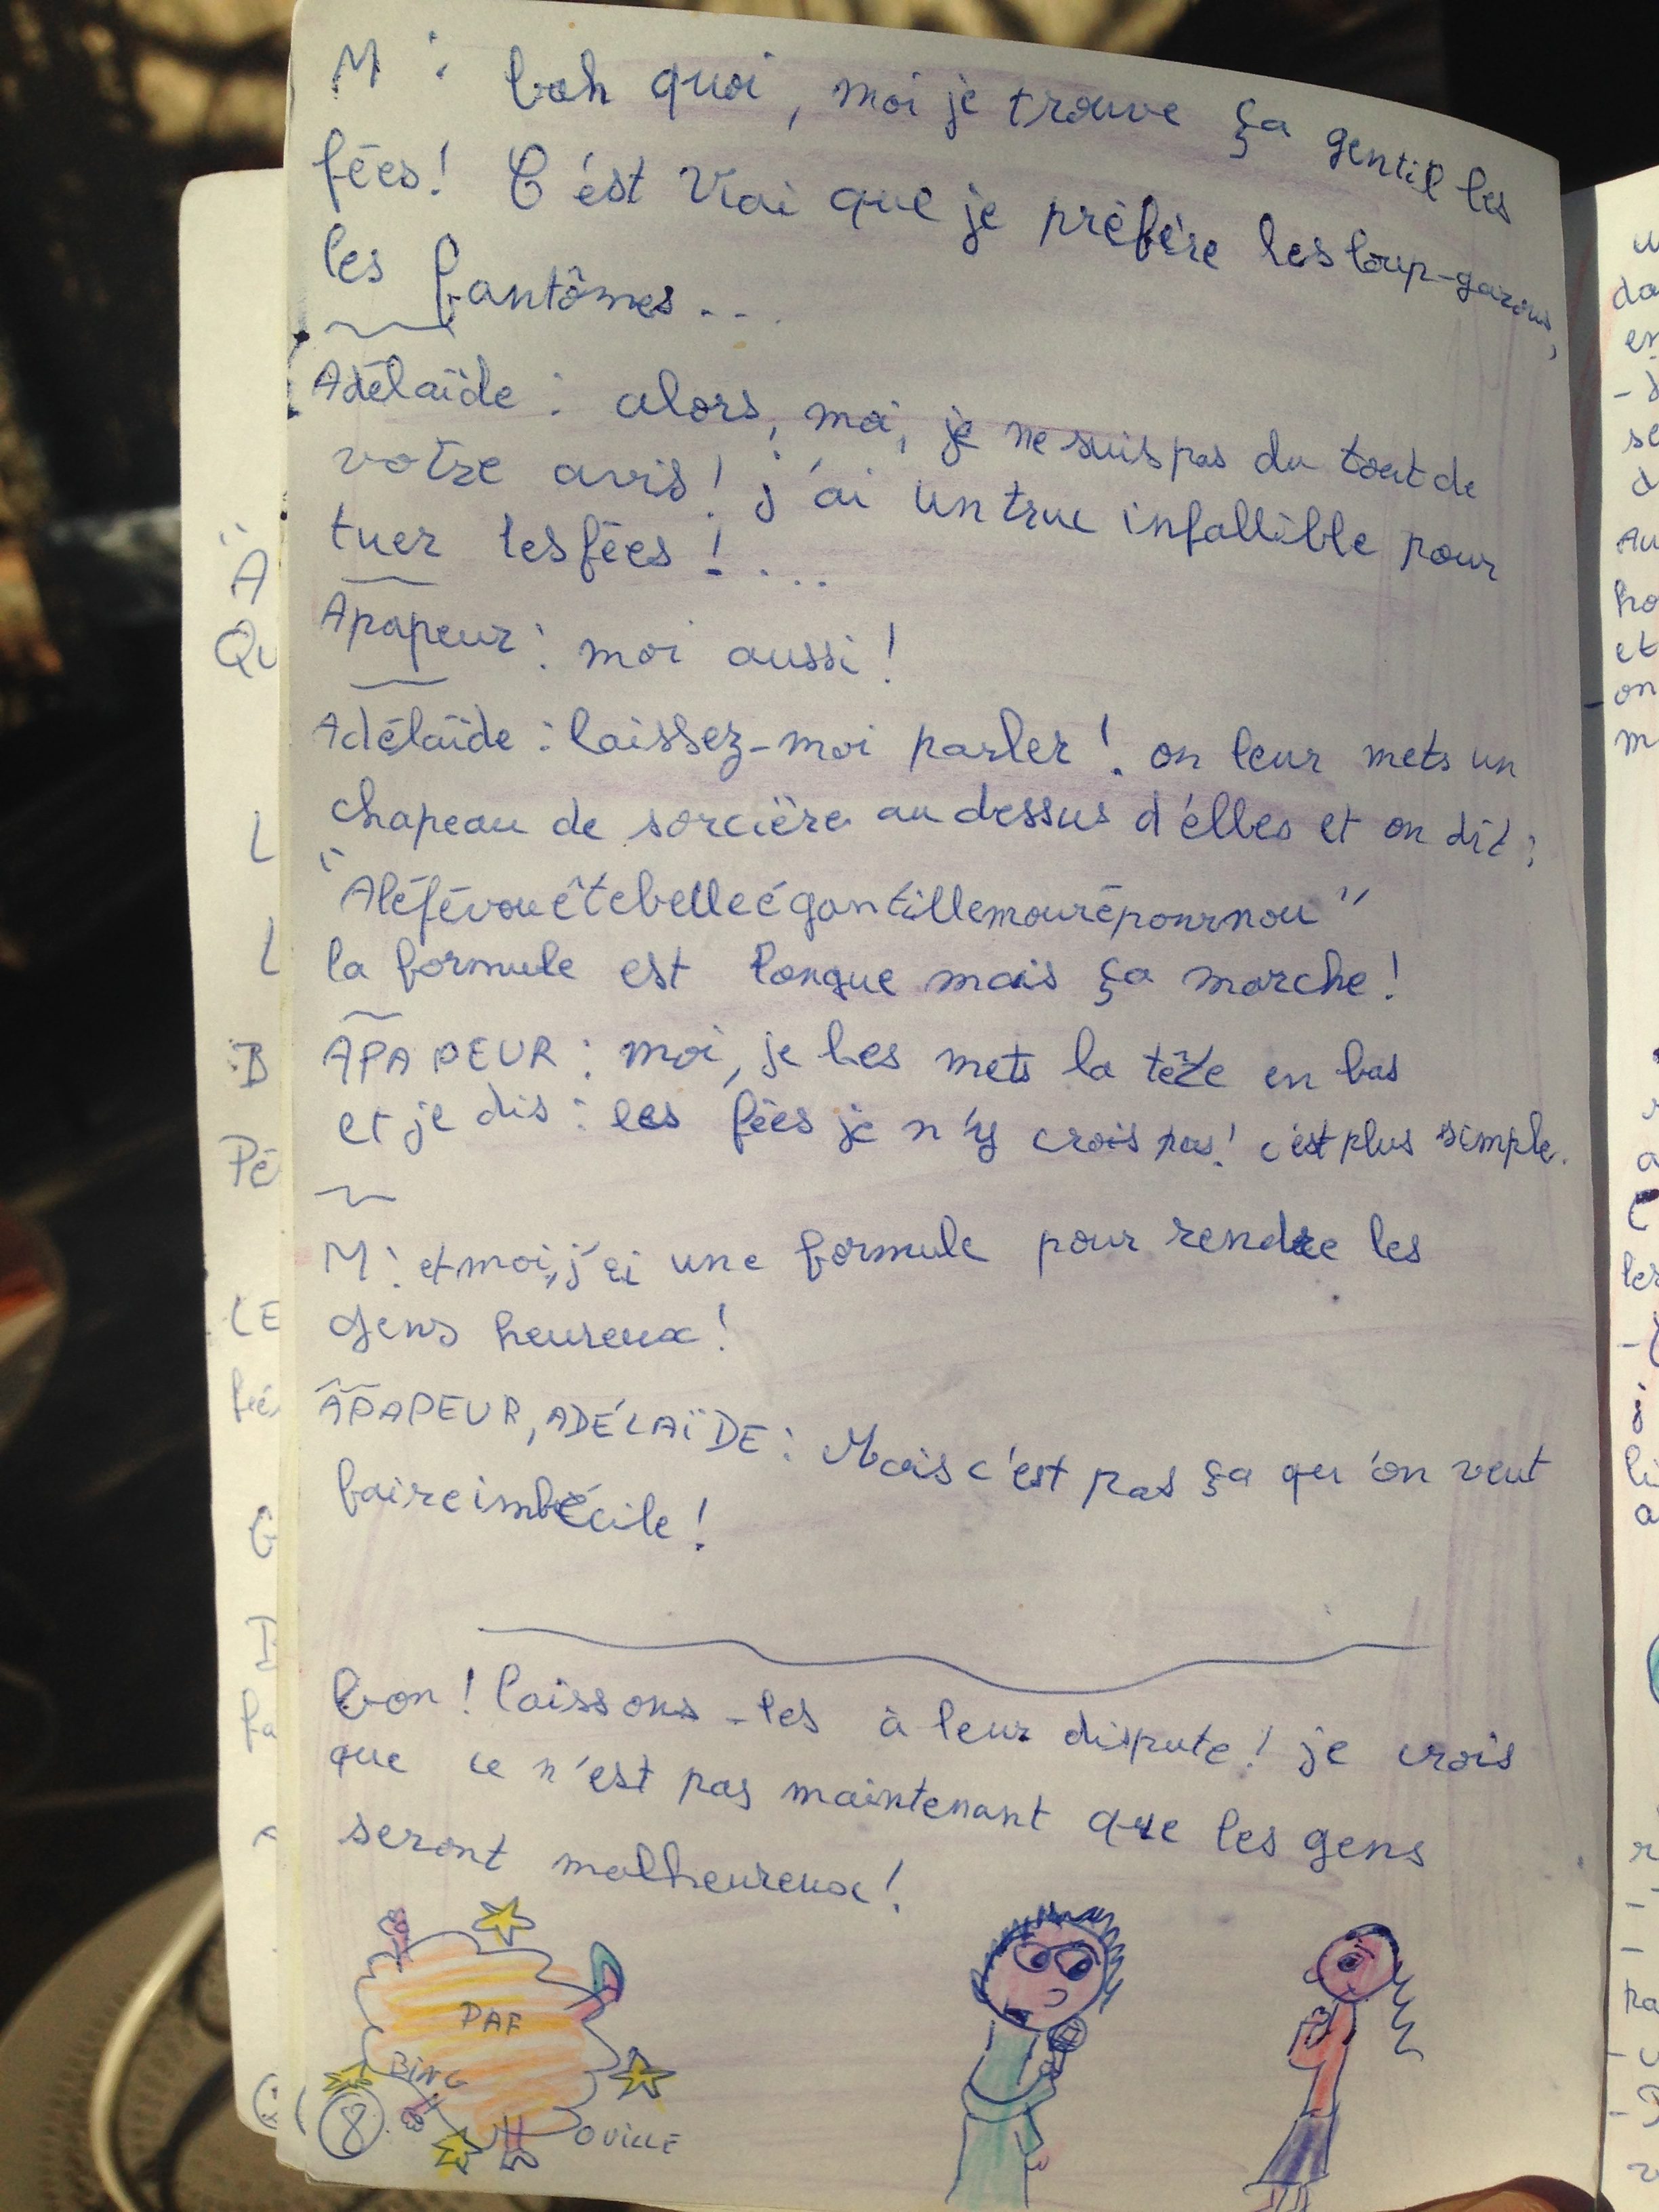 M : bah quoi, moi je trouve ça gentil les
fées ! C'est vrai que je préfère les loup-garous,
les fantômes...
Adélaïde : alors, moi, je ne suis pas du tout de
votre avis ! j'ai un truc infallible pour
tuer les fées !...
Apapeur : moi aussi !
Adélaïde : laissez-moi parler ! on leur mets un
chapeau de sorcière au dessus d'elles et on dit :
"Aléfévouêtebelleégantillemourépournou"
la formule est longue mais ça marche !
APAPEUR : moi, je les mets la tête en bas
et je dis : les fées je n'y crois pas ! c'est plus simple.
M : et moi, j'ai une formule pour rendre les
gens heureux !
APAPEUR, ADÉLAÏDE : Mais c'est pas ça qu'on veut
faire imbécile !
bon ! laissons-les à leur dispute ! je crois
que ce n'est pas maintenant que les gens
seront malheureux !
PAF
BING
OUILLE
8
"A
Qu
L
L
B
Pé
LE
fée
G
fa